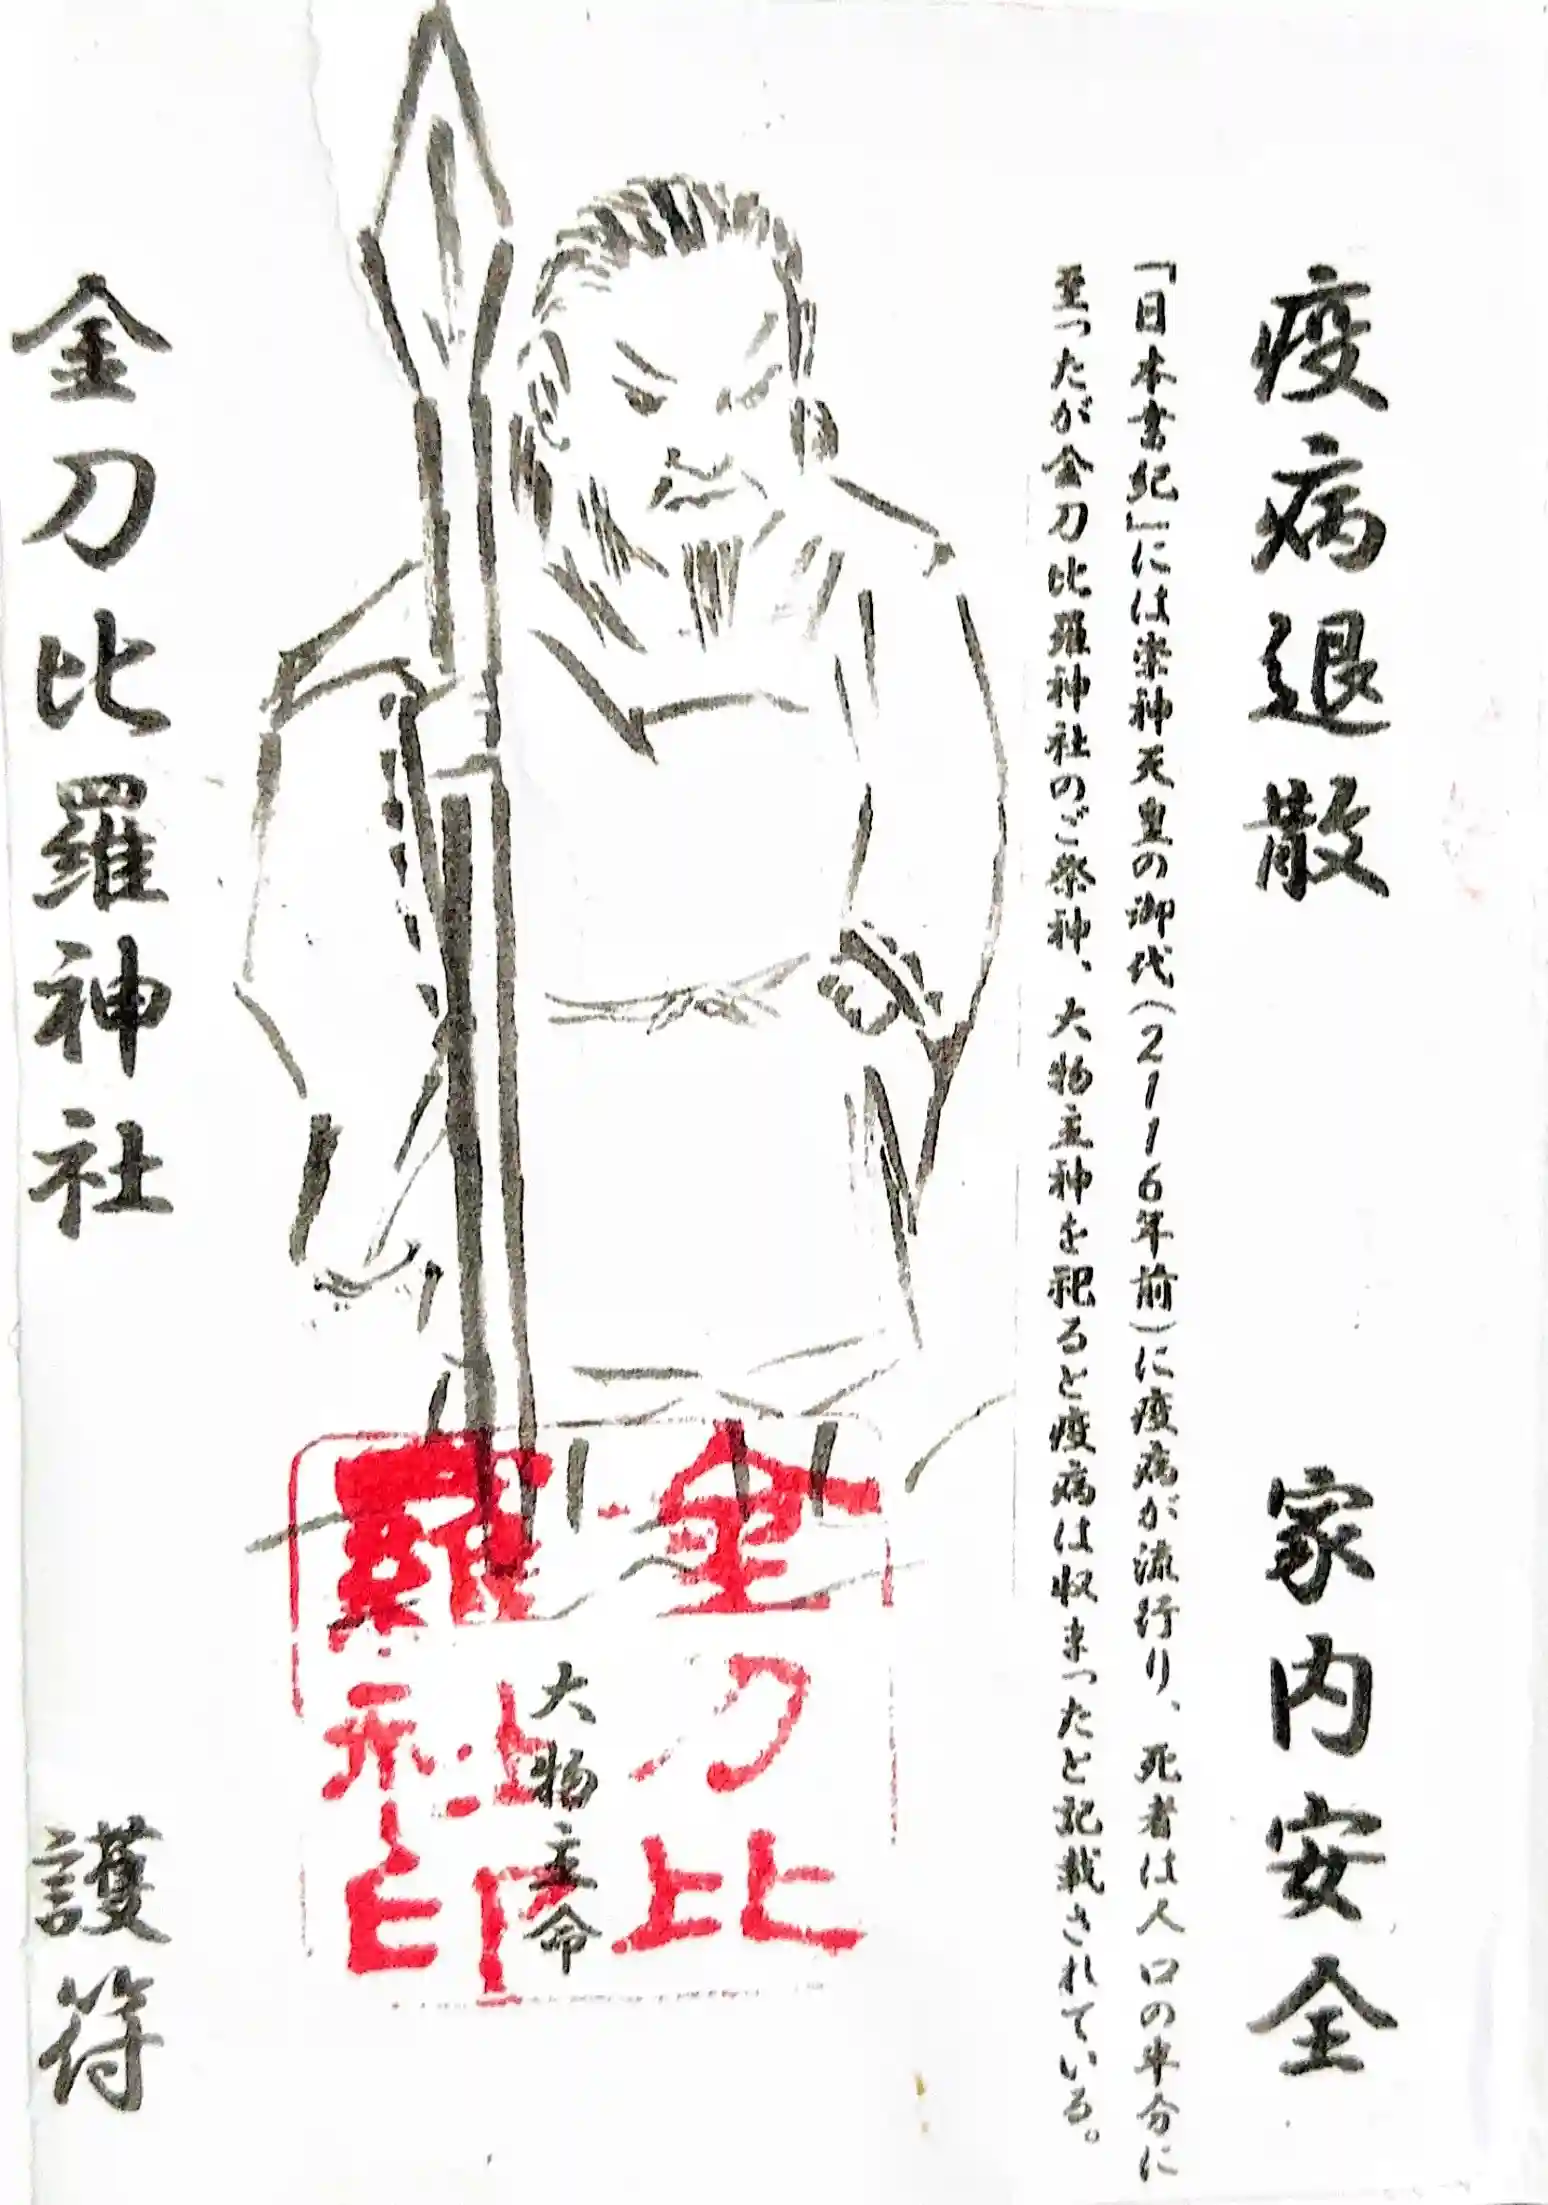 疫病退散　家内安全
「日本書紀」には崇神天皇の御代(2116年前)に疫病が流行り、死者は人口の半分に
至ったが金刀比羅神社のご祭神、大物主神を祀ると疫病は収まったと記載されている。
大物主命
金刀比
羅社印
金刀比羅神社　護符